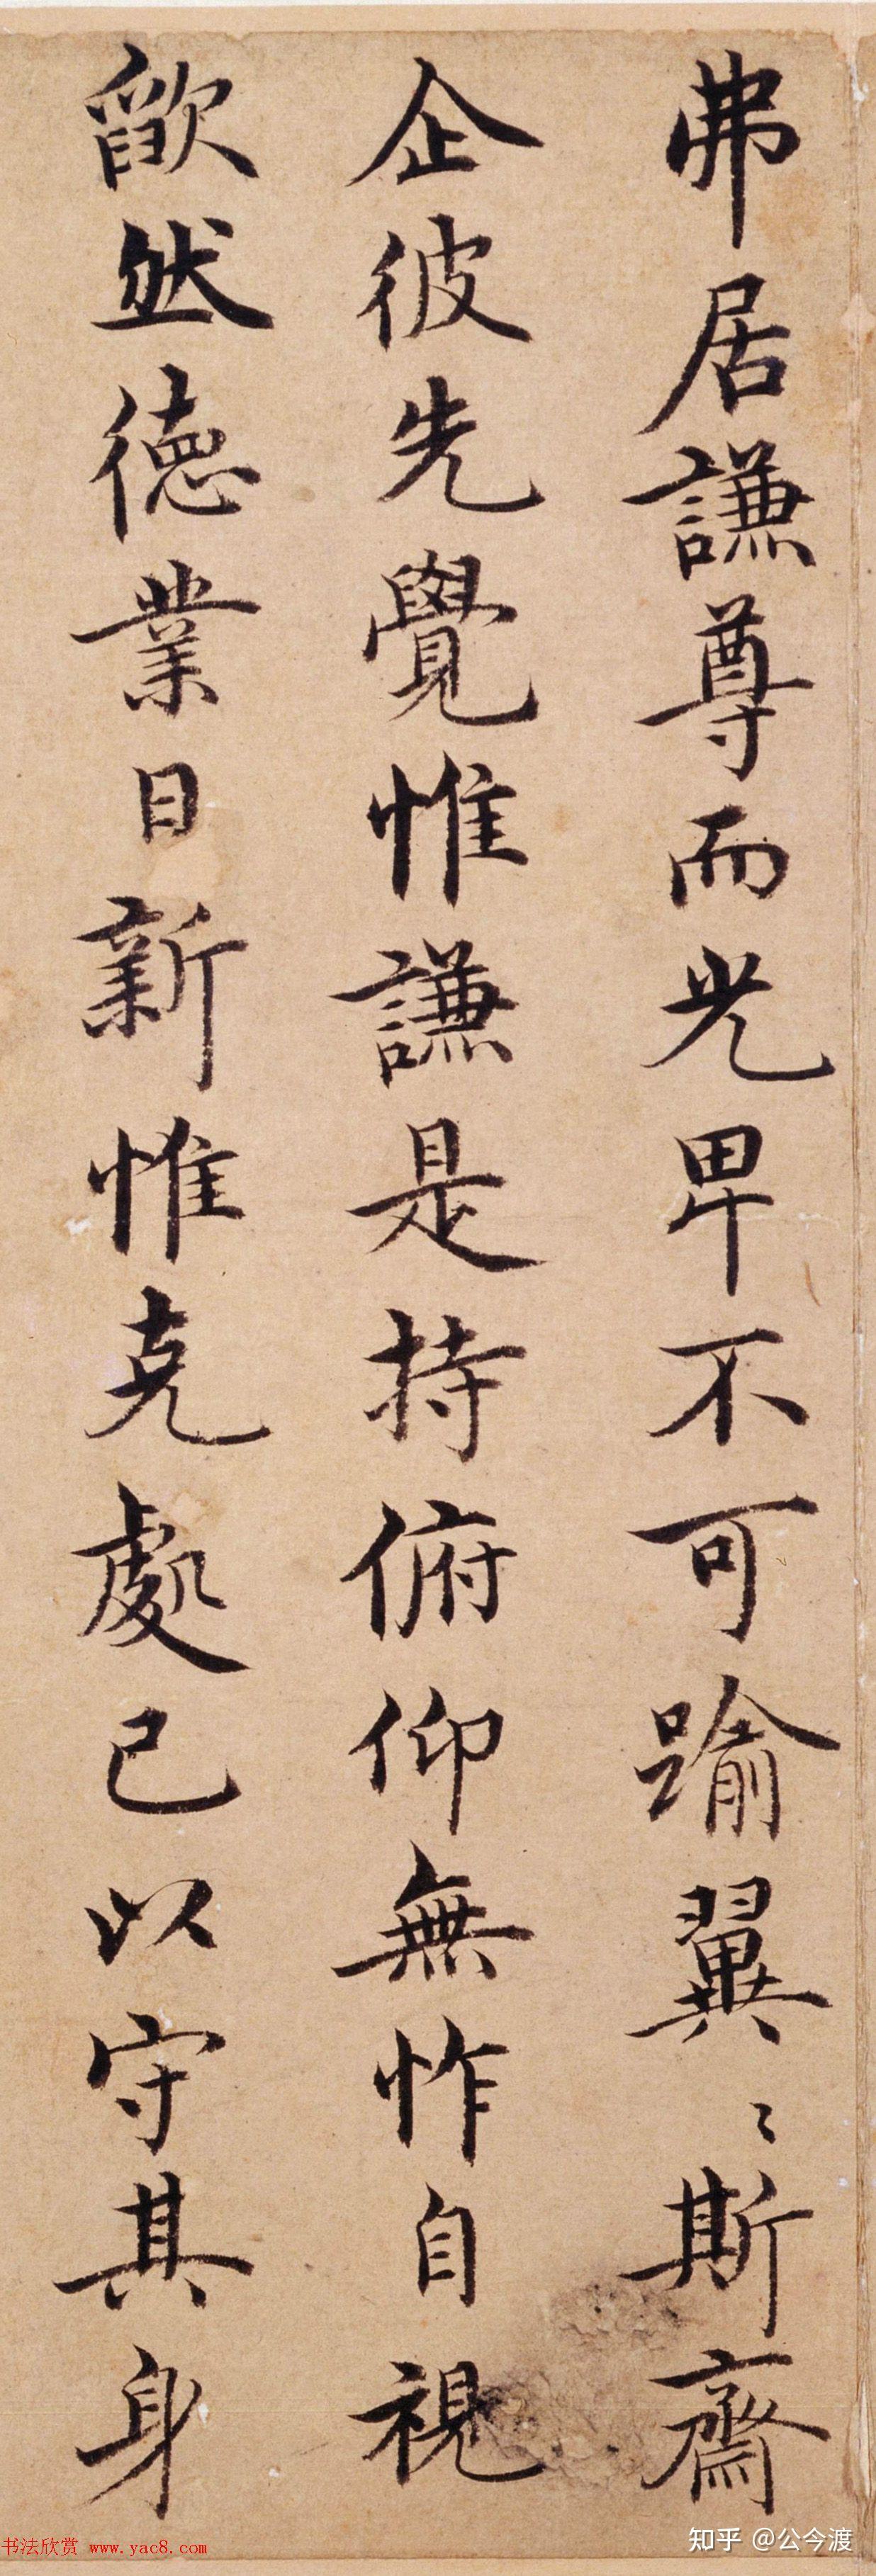 弗居謙尊而光卑不可踰翼〻斯齋
企彼先覺惟謙是持俯仰無怍自視
欿然德業日新惟克處己以守其身
书法欣赏 www.yac8.com
知乎 @公今渡